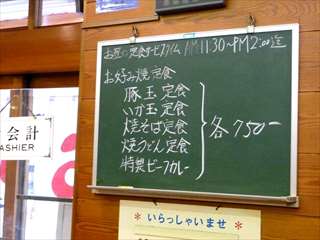 お昼の定食サービスタイム AM11:30〜PM2:00迄
お好み焼定食
豚玉定食
いか玉定食
焼そば定食
焼うどん定食
特製ビーフカレー
各750-
会計
CASHIER
* いらっしゃいませ *